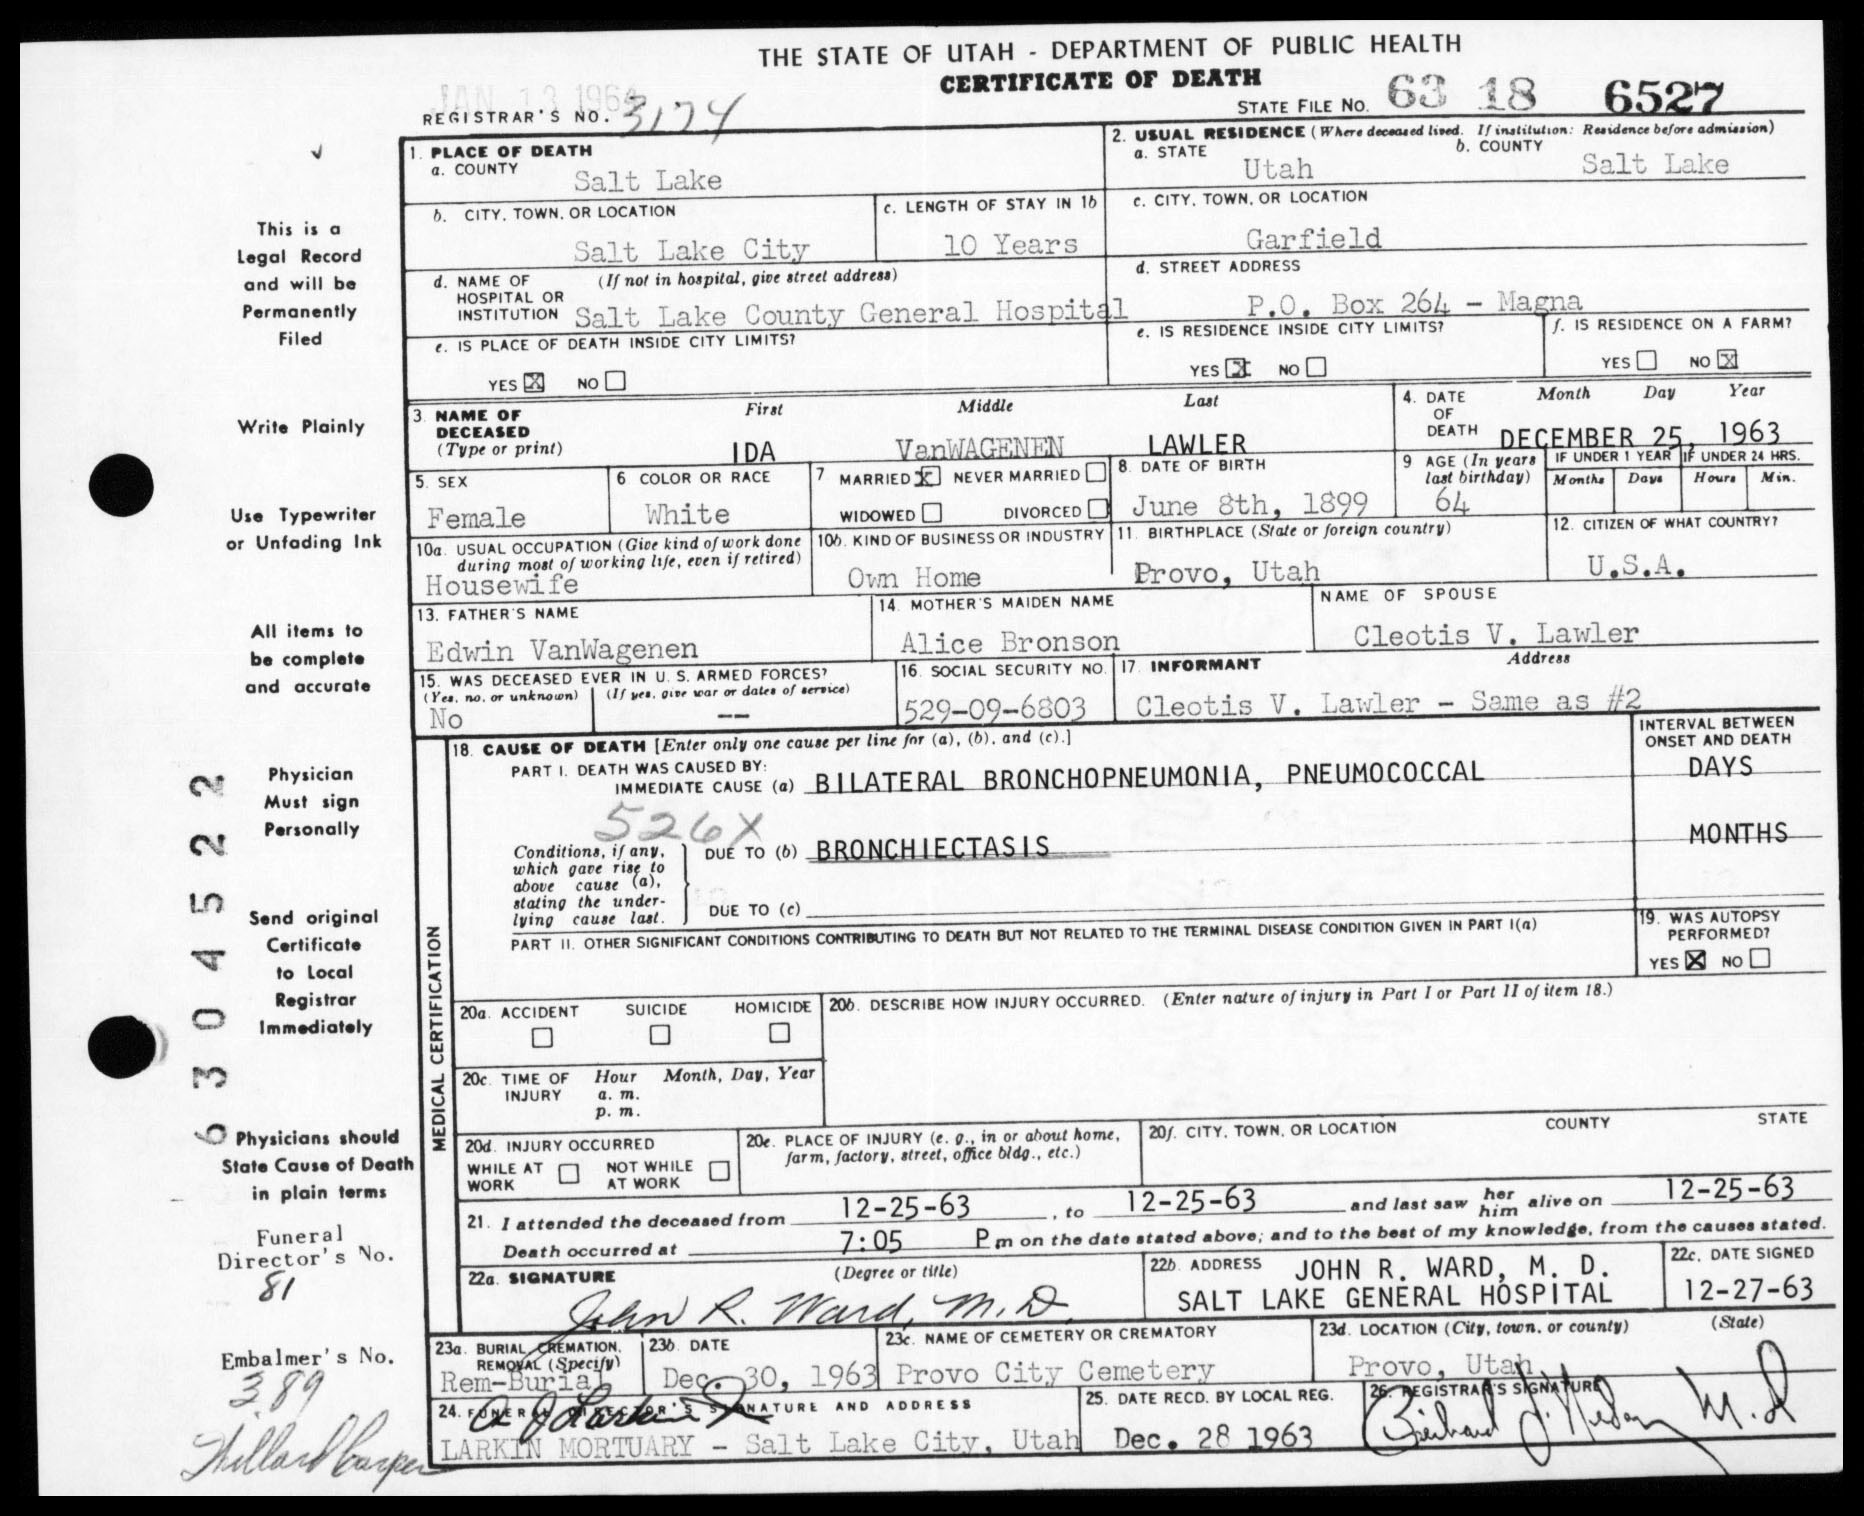 THE STATE OF UTAH - DEPARTMENT OF PUBLIC HEALTH
CERTIFICATE OF DEATH
JAN 13 1964
REGISTRAR'S NO. 3174
STATE FILE NO. 63 18 6527
1. PLACE OF DEATH
a. COUNTY
Salt Lake
2. USUAL RESIDENCE (Where deceased lived. If institution: Residence before admission)
a. STATE b. COUNTY
Utah Salt Lake
b. CITY, TOWN, OR LOCATION
Salt Lake City
c. LENGTH OF STAY IN 1b
10 Years
c. CITY, TOWN, OR LOCATION
Garfield
d. NAME OF HOSPITAL OR INSTITUTION (If not in hospital, give street address)
Salt Lake County General Hospital
d. STREET ADDRESS
P.O. Box 264 - Magna
e. IS PLACE OF DEATH INSIDE CITY LIMITS?
YES X NO
e. IS RESIDENCE INSIDE CITY LIMITS?
YES X NO
f. IS RESIDENCE ON A FARM?
YES NO X
3. NAME OF DECEASED
(Type or print)
First Middle Last
IDA VanWAGENEN LAWLER
4. DATE OF DEATH
Month Day Year
DECEMBER 25, 1963
5. SEX
Female
6 COLOR OR RACE
White
7 MARRIED X NEVER MARRIED
WIDOWED DIVORCED
8. DATE OF BIRTH
June 8th, 1899
9 AGE (In years last birthday)
64
IF UNDER 1 YEAR
Months Days
IF UNDER 24 HRS.
Hours Min.
10a. USUAL OCCUPATION (Give kind of work done during most of working life, even if retired)
Housewife
10b. KIND OF BUSINESS OR INDUSTRY
Own Home
11. BIRTHPLACE (State or foreign country)
Provo, Utah
12. CITIZEN OF WHAT COUNTRY?
U.S.A.
13. FATHER'S NAME
Edwin VanWagenen
14. MOTHER'S MAIDEN NAME
Alice Bronson
NAME OF SPOUSE
Cleotis V. Lawler
15. WAS DECEASED EVER IN U. S. ARMED FORCES?
(Yes, no, or unknown) (If yes, give war or dates of service)
No --
16. SOCIAL SECURITY NO.
529-09-6803
17. INFORMANT Address
Cleotis V. Lawler - Same as #2
MEDICAL CERTIFICATION
18. CAUSE OF DEATH [Enter only one cause per line for (a), (b), and (c).]
INTERVAL BETWEEN ONSET AND DEATH
PART I. DEATH WAS CAUSED BY:
IMMEDIATE CAUSE (a) BILATERAL BRONCHOPNEUMONIA, PNEUMOCOCCAL DAYS
526X
Conditions, if any, which gave rise to above cause (a), stating the underlying cause last.
DUE TO (b) BRONCHIECTASIS MONTHS
DUE TO (c)
PART II. OTHER SIGNIFICANT CONDITIONS CONTRIBUTING TO DEATH BUT NOT RELATED TO THE TERMINAL DISEASE CONDITION GIVEN IN PART I(a)
19. WAS AUTOPSY PERFORMED?
YES X NO
20a. ACCIDENT SUICIDE HOMICIDE
20b. DESCRIBE HOW INJURY OCCURRED. (Enter nature of injury in Part I or Part II of item 18.)
20c. TIME OF INJURY
Hour Month, Day, Year
a. m.
p. m.
20d. INJURY OCCURRED
WHILE AT WORK NOT WHILE AT WORK
20e. PLACE OF INJURY (e. g., in or about home, farm, factory, street, office bldg., etc.)
20f. CITY, TOWN, OR LOCATION COUNTY STATE
21. I attended the deceased from 12-25-63, to 12-25-63 and last saw her him alive on 12-25-63
Death occurred at 7:05 P m on the date stated above; and to the best of my knowledge, from the causes stated.
22a. SIGNATURE (Degree or title)
John R. Ward, M.D.
22b. ADDRESS JOHN R. WARD, M. D.
SALT LAKE GENERAL HOSPITAL
22c. DATE SIGNED
12-27-63
23a. BURIAL, CREMATION, REMOVAL (Specify)
Rem-Burial
23b. DATE
Dec. 30, 1963
23c. NAME OF CEMETERY OR CREMATORY
Provo City Cemetery
23d. LOCATION (City, town, or county) (State)
Provo, Utah
24. FUNERAL DIRECTOR'S SIGNATURE AND ADDRESS
LARKIN MORTUARY - Salt Lake City, Utah
25. DATE RECD. BY LOCAL REG.
Dec. 28 1963
26. REGISTRAR'S SIGNATURE
M.D
This is a
Legal Record
and will be
Permanently
Filed
Write Plainly
Use Typewriter
or Unfading Ink
All items to
be complete
and accurate
Physician
Must sign
Personally
Send original
Certificate
to Local
Registrar
Immediately
Physicians should
State Cause of Death
in plain terms
Funeral
Director's No.
81
Embalmer's No.
389
6 3 0 4 5 2 2